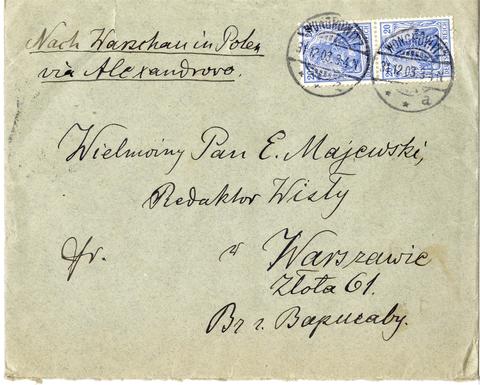 Nach Warschau in Polen
via Alexandrowo.
WONGROWITZ
31.12.03. 3-4 N.
* * a
WONGROWITZ
31.12.03. 3-4 N.
* * a
20
20
Wielmożny Pan E. Majewski,
Redaktor Wisły
fr. w Warszawie
Złota 61.
Вг г. Варшаву.